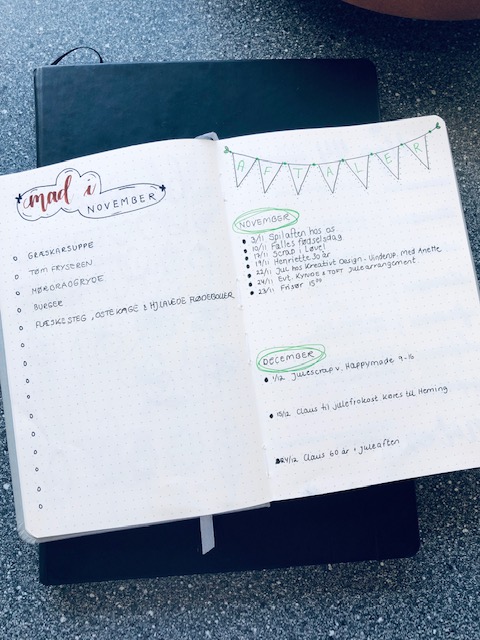 mad i
NOVEMBER
GRÆSKARSUPPE
TØM FRYSEREN
MØRBRADGRYDE
BURGER
FLÆSKESTEG, OSTEKAGE & HJLAVEDE FLØDEBOLLER
AFTALER
NOVEMBER
3/11 Spilaften hos os
10/11 Fælles fødselsdag
17/11 Scrap i Løvel
19/11 Henriette 30 år
22/11 Jul hos Kreativt Design, Vinderup. Med Anette
24/11 Evt. KYNDE & TOFT Julearrangement
23/11 Frisør 15
DECEMBER
1/12 Julescrap v. Happymade 9-16
15/12 Claus til julefrokost køres til Herning
24/12 Claus 60 år + Juleaften